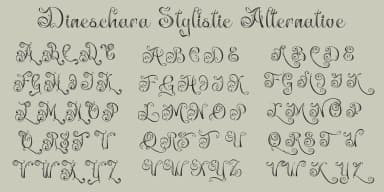 Dineschara Stylistic Alternative
A B C D E A B C D E A B C D E
F G H I J K F G H I J K F G H I J K
L M N O P L M N O P L M N O P
Q R S T U Q R S T U Q R S T U
V W X Y Z V W X Y Z V W X Y Z